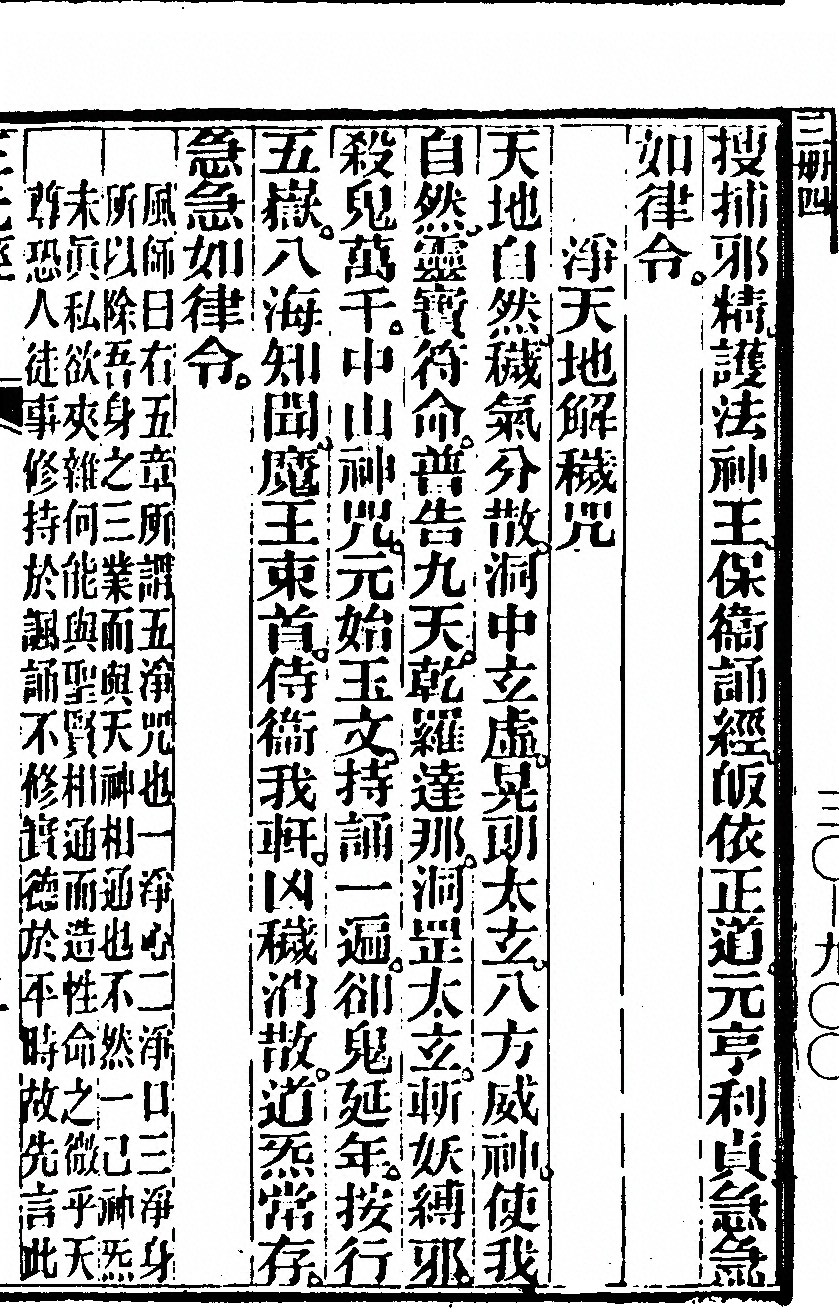 三册四
三〇—九〇〇
搜捕邪精、護法神王、保衞誦經、皈依正道、元亨利貞、急急
如律令。
淨天地解穢咒
天地自然、穢氣分散。洞中玄虛。晃朗太玄。八方威神、使我
自然、靈寶符命。普告九天。乾羅達那。洞罡太玄。斬妖縛邪。
殺鬼萬千。中山神咒。元始玉文、持誦一遍。卻鬼延年。按行
五嶽。八海知聞、魔王束首。侍衞我軒。凶穢消散。道炁常存。
急急如律令。
風師曰右五章所謂五淨咒也一淨心二淨口三淨身
所以除吾身之三業而與天神相通也不然一己神炁
未眞私欲夾雜何能與聖賢相通而造性命之微乎天
尊恐人徒事修持於諷誦不修實德於平時故先言此